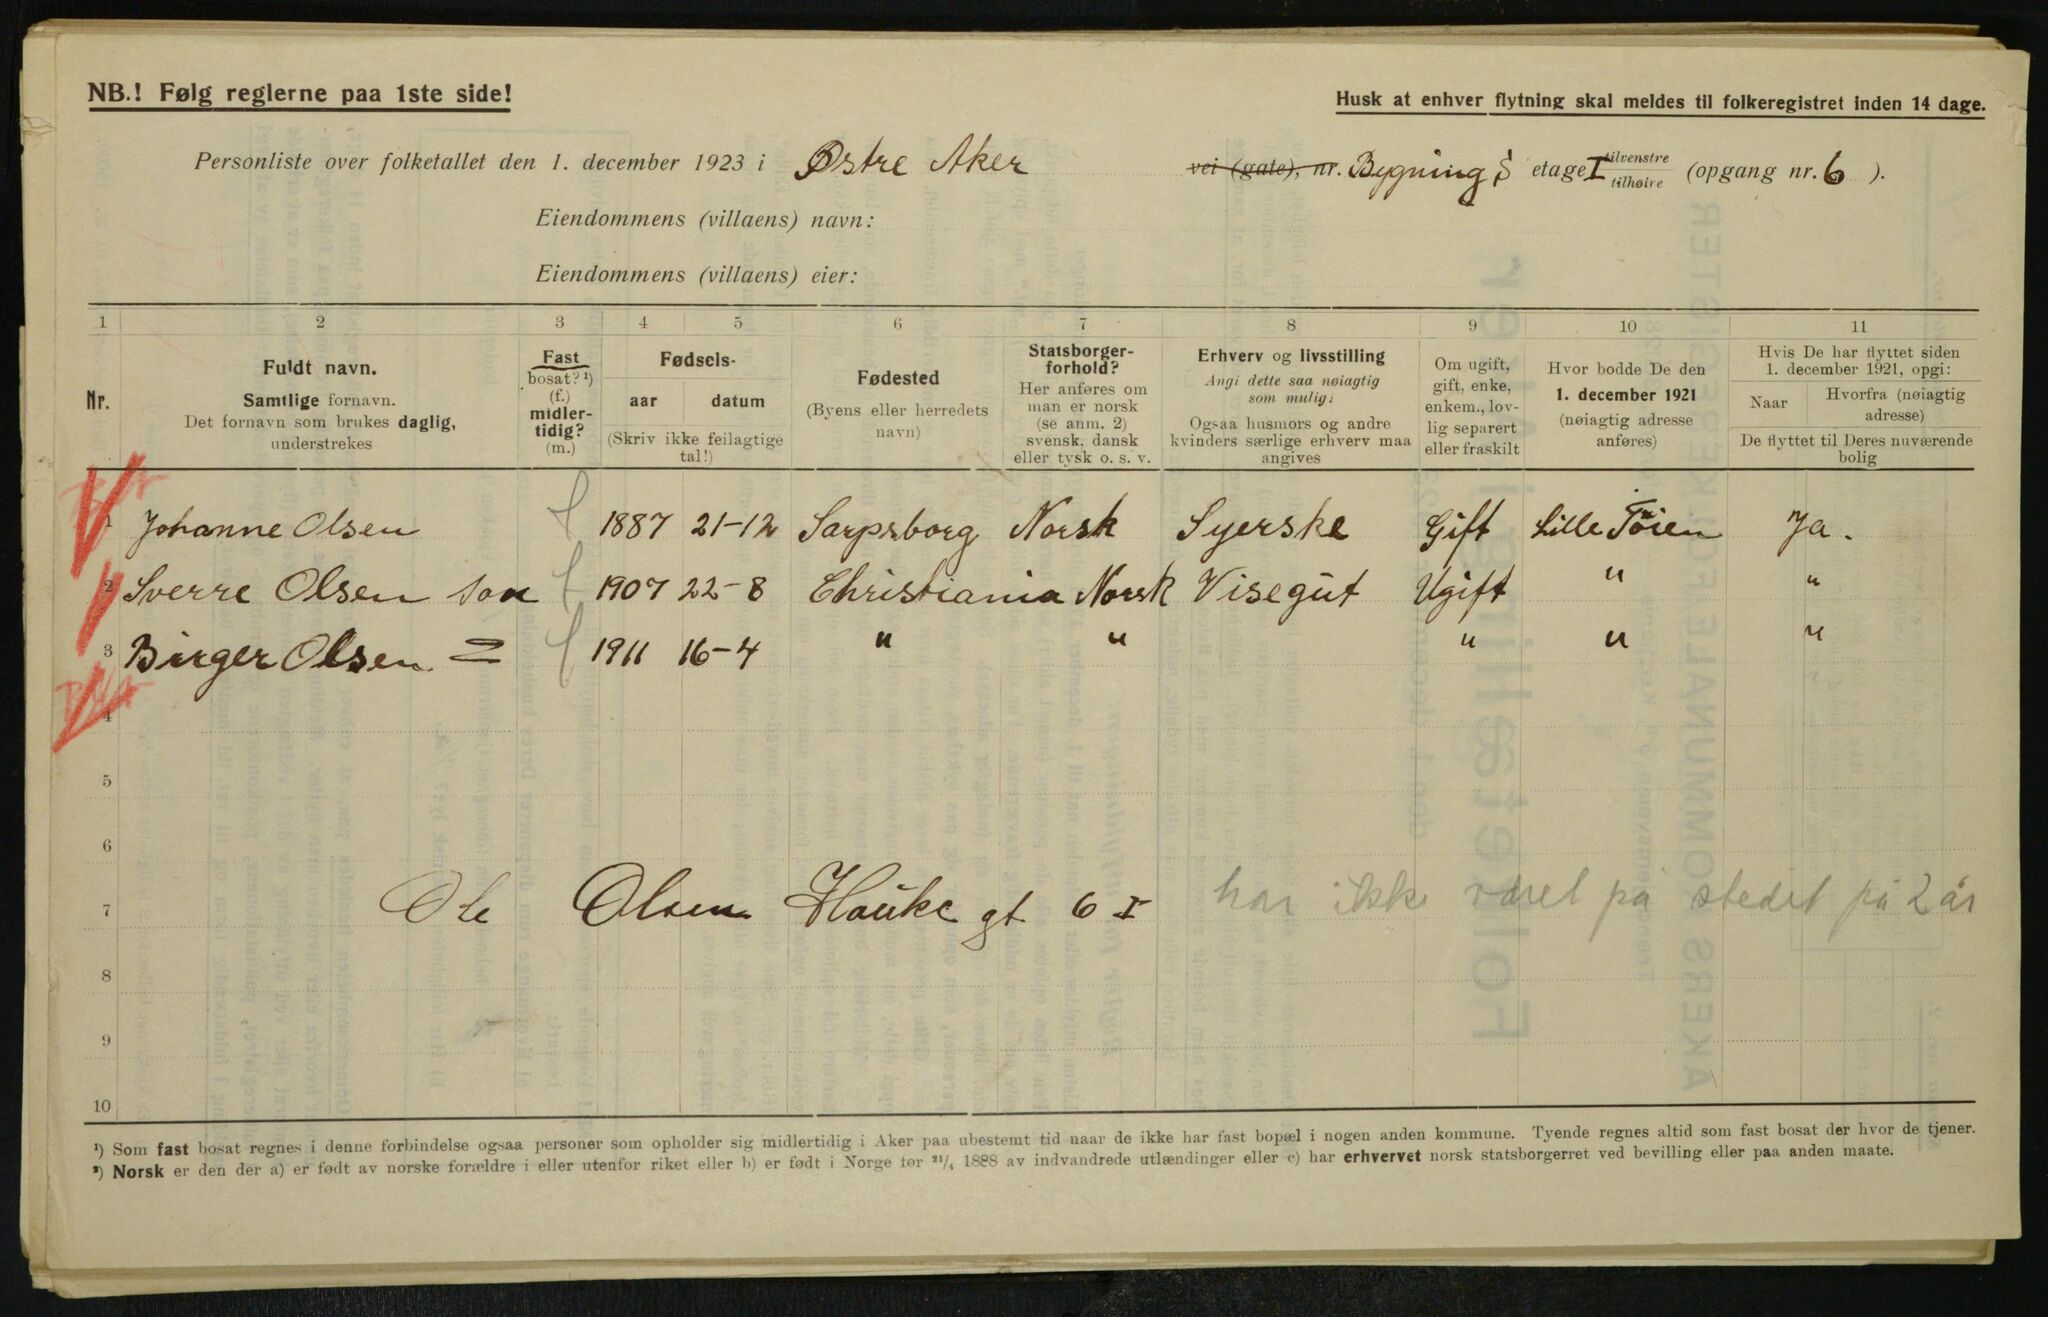 NB.! Følg reglerne paa 1ste side!
Husk at enhver flytning skal meldes til folkeregistret inden 14 dage.
Personliste over folketallet den 1. december 1923 i Østre Aker vei (gate), nr. Bygning etage I tilvenstre tilhøire (opgang nr. 6 ).
Eiendommens (villaens) navn:
Eiendommens (villaens) eier:
1 2 3 4 5 6 7 8 9 10 11
Nr.
Fuldt navn.
Samtlige fornavn.
Det fornavn som brukes daglig,
understrekes
Fast
bosat? ¹)
(f.)
midler-
tidig?
(m.)
Fødsels-
aar datum
(Skriv ikke feilagtige
tal!)
Fødested
(Byens eller herredets
navn)
Statsborger-
forhold?
Her anføres om
man er norsk
(se anm. 2)
svensk, dansk
eller tysk o. s. v.
Erhverv og livsstilling
Angi dette saa nøiagtig
som mulig:
Ogsaa husmors og andre
kvinders særlige erhverv maa
angives
Om ugift,
gift, enke,
enkem., lov-
lig separert
eller fraskilt
Hvor bodde De den
1. december 1921
(nøiagtig adresse
anføres)
Hvis De har flyttet siden
1. december 1921, opgi:
Naar
Hvorfra (nøiagtig
adresse)
De flyttet til Deres nuværende
bolig
1 Johanne Olsen f 1887 21-12 Sarpsborg Norsk Syerske Gift Lille Tøien Ja.
2 Sverre Olsen søn f 1907 22-8 Christiania Norsk Visegut Ugift " "
3 Birger Olsen = f 1911 16-4 " " " " "
4
5
6
7 Ole Olsen Hauke gt 6 I har ikke været på stedet på 2 år
8
9
10
¹) Som fast bosat regnes i denne forbindelse ogsaa personer som opholder sig midlertidig i Aker paa ubestemt tid naar de ikke har fast bopæl i nogen anden kommune. Tyende regnes altid som fast bosat der hvor de tjener.
²) Norsk er den der a) er født av norske forældre i eller utenfor riket eller b) er født i Norge før 21/4 1888 av indvandrede utlændinger eller c) har erhvervet norsk statsborgerret ved bevilling eller paa anden maate.